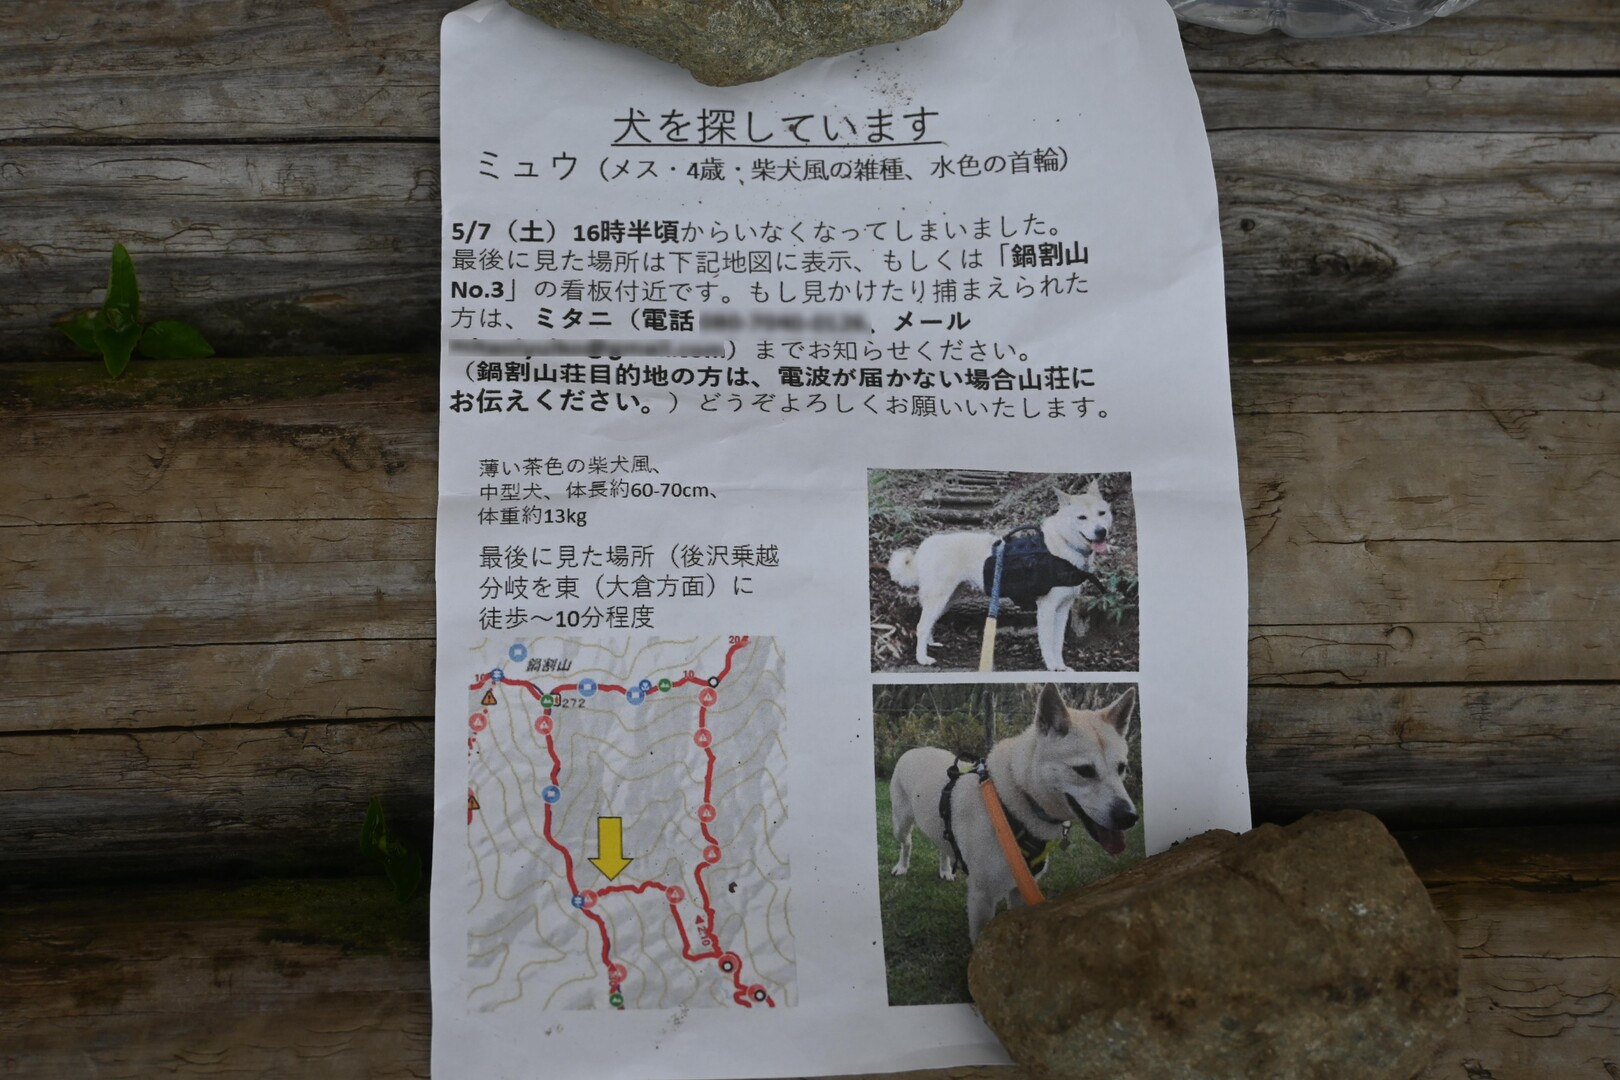 犬を探しています
ミュウ（メス・4歳・柴犬風の雑種、水色の首輪）
5/7（土）16時半頃からいなくなってしまいました。
最後に見た場所は下記地図に表示、もしくは「鍋割山
No.3」の看板付近です。もし見かけたり捕まえられた
方は、ミタニ（電話 、メール
@gmail.com）までお知らせください。
（鍋割山荘目的地の方は、電波が届かない場合山荘に
お伝えください。）どうぞよろしくお願いいたします。
薄い茶色の柴犬風、
中型犬、体長約60-70cm、
体重約13kg
最後に見た場所（後沢乗越
分岐を東（大倉方面）に
徒歩～10分程度
20
鍋割山
10
10
272